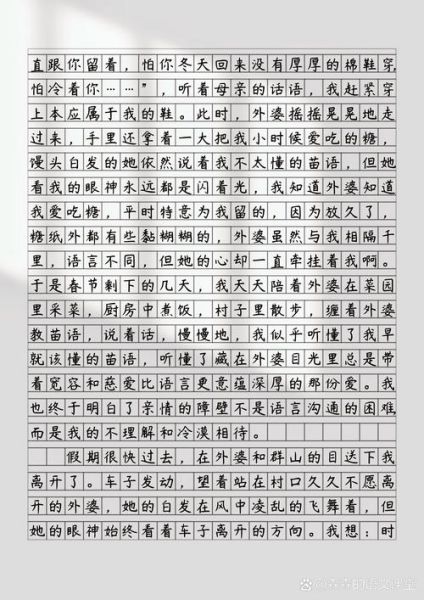 直跟你留着，怕你冬天回来没有厚厚的棉鞋穿，
怕冷着你……”，听着母亲的话语，我赶紧穿
上本应属于我的鞋。此时，外婆摇摇晃晃地走
过来，手里还拿着一大把我小时候爱吃的糖，
馒头白发的她依然说着我不太懂的苗语，但她
看我的眼神永远都是闪着光，我知道外婆知道
我爱吃糖，平时特意为我留的，因为放久了，
糖纸外都有些黏糊糊的，外婆虽然与我相隔千
里，语言不同，但她的心却一直牵挂着我啊。
于是春节剩下的几天，我天天陪着外婆在菜园
里采菜，厨房中煮饭，村子里散步，缠着外婆
教苗语，说着话，慢慢地，我似乎听懂了我早
就该懂的苗语，听懂了藏在外婆目光里总是带
着宽容和慈爱比语言更意蕴深厚的那份爱。我
也终于明白了亲情的障壁不是语言沟通的困难
而是我的不理解和冷漠相待。
假期很快过去，在外婆和群山的目送下我
离开了。车子发动，望着站在村口久久不愿离
开的外婆，她的白发在风中凌乱的飞舞着，但
她的眼神始终看着车子离开的方向。我想：时